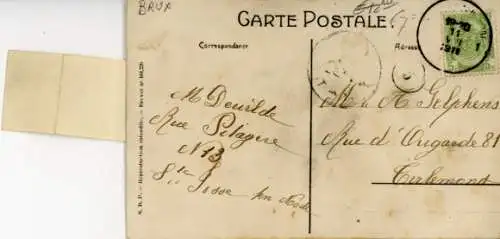 BRUX
CARTE POSTALE
Correspondance
Adresse
M Dewilde
Rue Pelagne
N 13
Ste Josse ten Node
1911
M. A. Gelphens
Rue d'Ougarde 81
Tirlemond